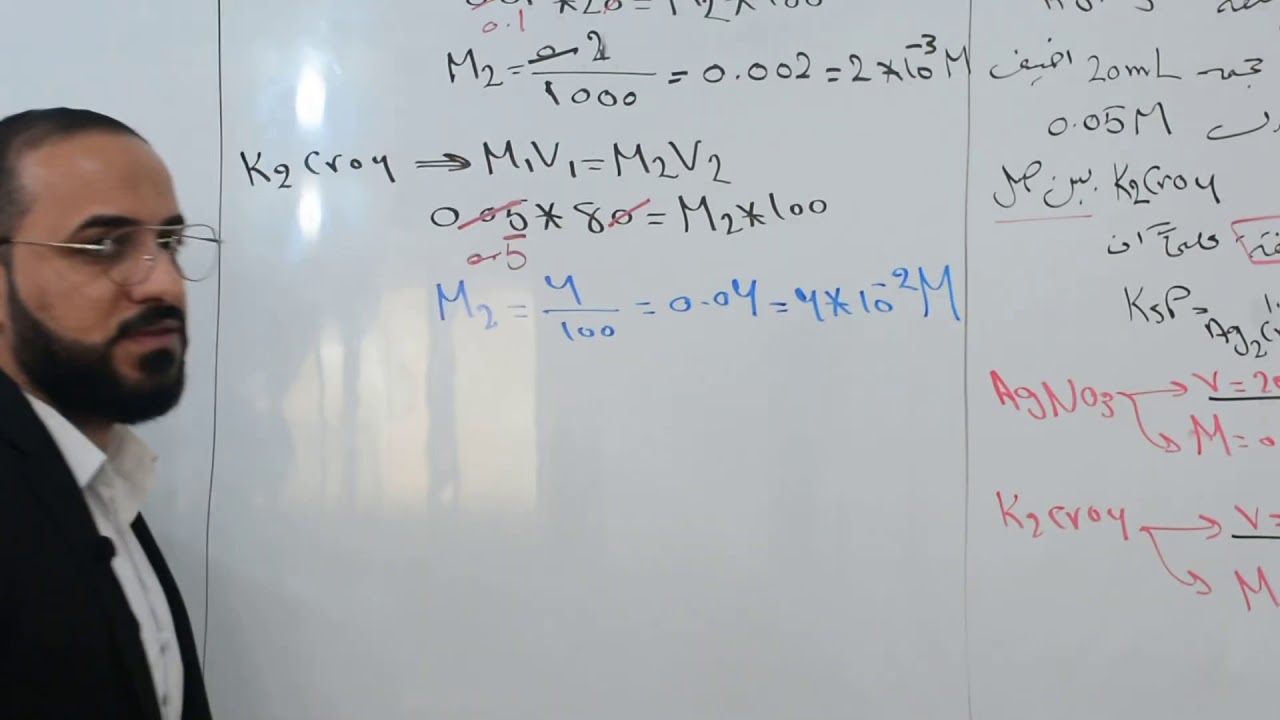 0.1
M₂ = 0.2/1000 = 0.002 = 2*10⁻³ M
K2CrO4 ⇒ M₁V₁ = M₂V₂
0.05 * 80 = M₂ * 100
0.5
M₂ = 4/100 = 0.04 = 4*10⁻² M
20mL اضيف
0.05M
K2CrO4 بين هل
Ksp =
Ag2Cr
AgNO3 → V = 20
M = 0
K2CrO4 → V =
M